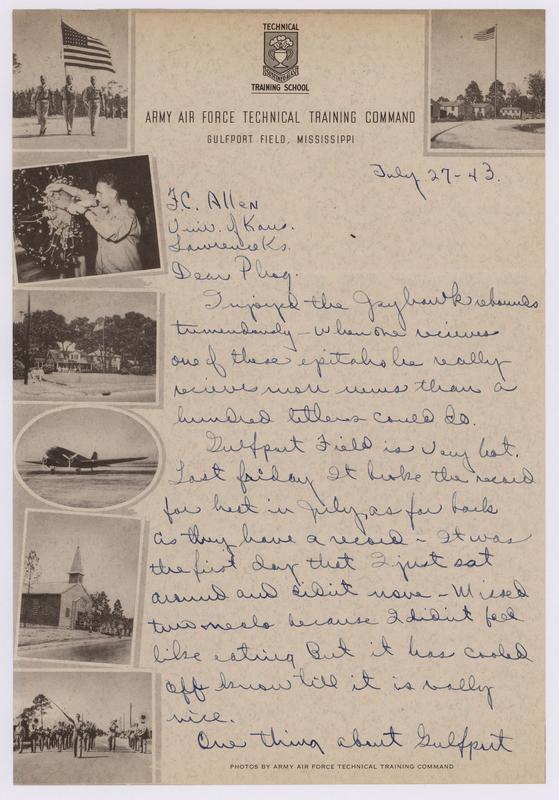 TECHNICAL
TRAINING SCHOOL
ARMY AIR FORCE TECHNICAL TRAINING COMMAND
GULFPORT FIELD, MISSISSIPPI
July 27-43.
F.C. Allen
Univ. of Kans.
Lawrence Ks.
Dear Phog.
Enjoyed the Jayhawk rebounds
tremendously - when one recieves
one of these epitahs he really
recieves more news than a
hundred letters could do.
Gulfport Field is very hot.
Last friday It broke the record
for heat in July, as far back
as they have a record - It was
the first day that I just sat
around and didn't move - Missed
two meals because I didn't feel
like eating But it has cooled
off know till it is really
nice.
One thing about Gulfport
PHOTOS BY ARMY AIR FORCE TECHNICAL TRAINING COMMAND